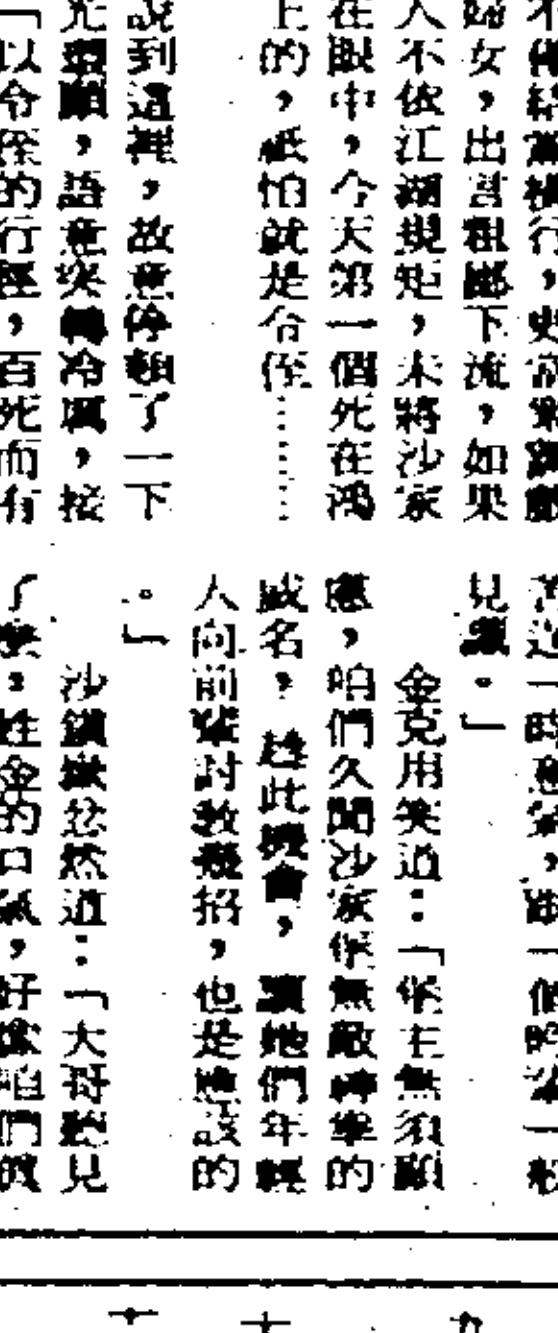 婦女，出言粗鄙下流，如果
人不依江湖規矩，未將沙家
在眼中，今天第一個死在鴻
上的，祇怕就是令侄……
說到這裡，故意停頓了一下
，語意突轉冷厲，接
「以令侄的行徑，百死而有
苦道一時意氣，跟一個
見識。」
金克用笑道：「堡主無須顧
慮，咱們久聞沙家堡無敵神拳的
威名，趁此機會，讓她們年輕
人向前輩討教幾招，也是應該的
。」
沙鎮嶽忿然道：「大哥聽見
了麼，姓金的口氣，好像咱們
九
十
十